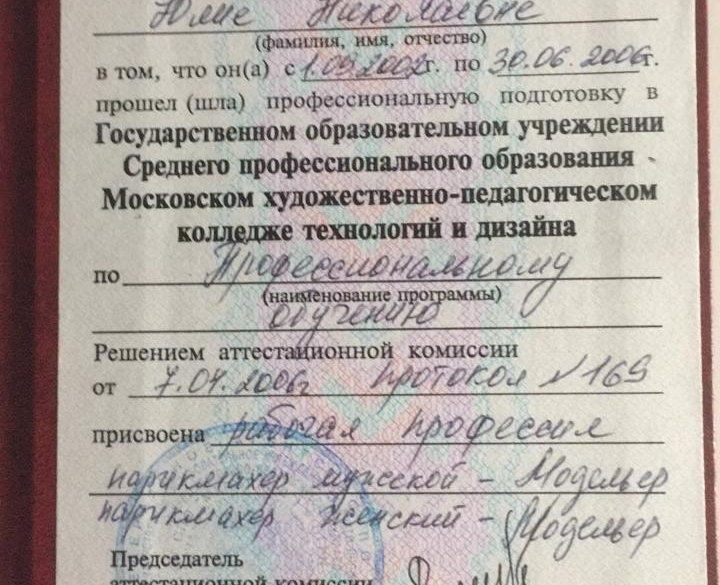 Юлие Николаевне
(фамилия, имя, отчество)
в том, что он(а) с 1.09.2002г. по 30.06.2006г.
прошел (шла) профессиональную подготовку в
Государственном образовательном учреждении
Среднего профессионального образования
Московском художественно-педагогическом
колледже технологий и дизайна
по Профессиональному
(наименование программы)
обучению
Решением аттестационной комиссии
от 7.04.2006г протокол №169
присвоена рабочая профессия
парикмахер мужской - Модельер
парикмахер женский - Модельер
Председатель
аттестационной комиссии